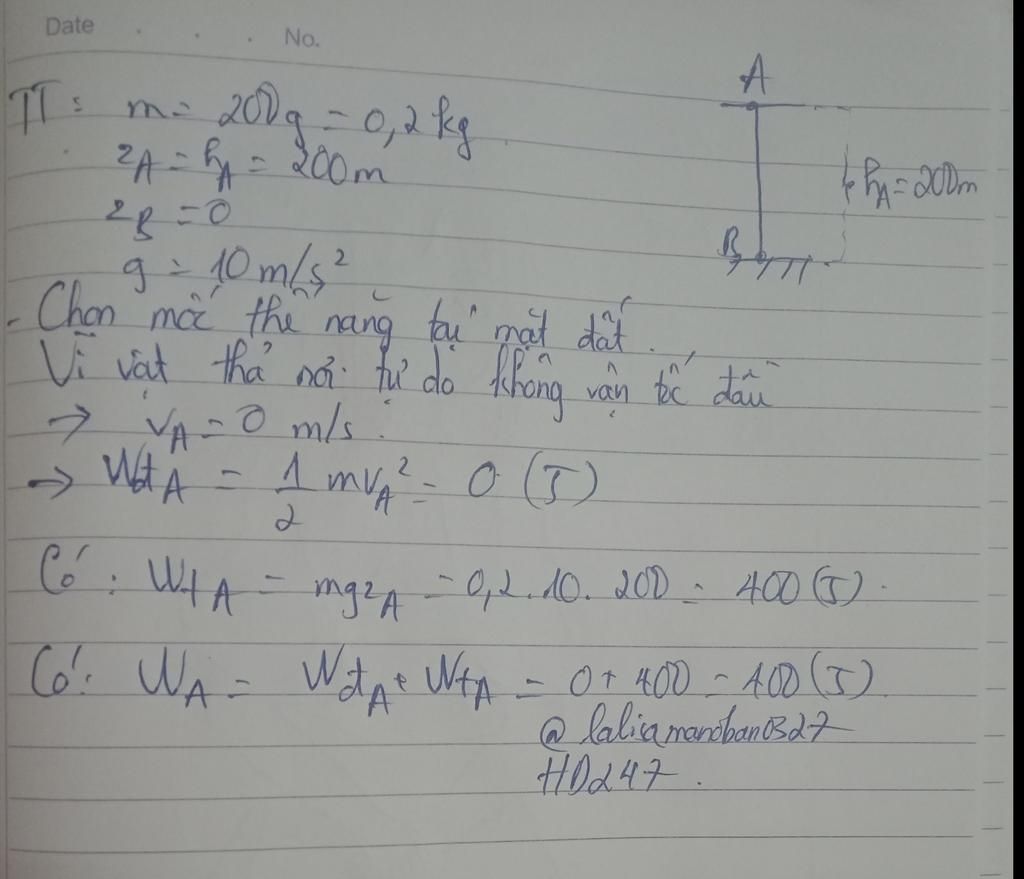 Date . . . No.
TT: m = 200g = 0,2 kg
A
zA = hA = 200m
hA = 200m
zB = 0
B
g = 10 m/s²
- Chọn mốc thế năng tại mặt đất.
Vì vật thả rơi tự do không vận tốc đầu
→ vA = 0 m/s.
→ WđA = 1/2 mvA² = 0 (J)
Có: WtA = mgzA = 0,2.10.200 = 400 (J).
Có: WA = WđA + WtA = 0 + 400 = 400 (J).
@lalisamanoban0327
HD247.